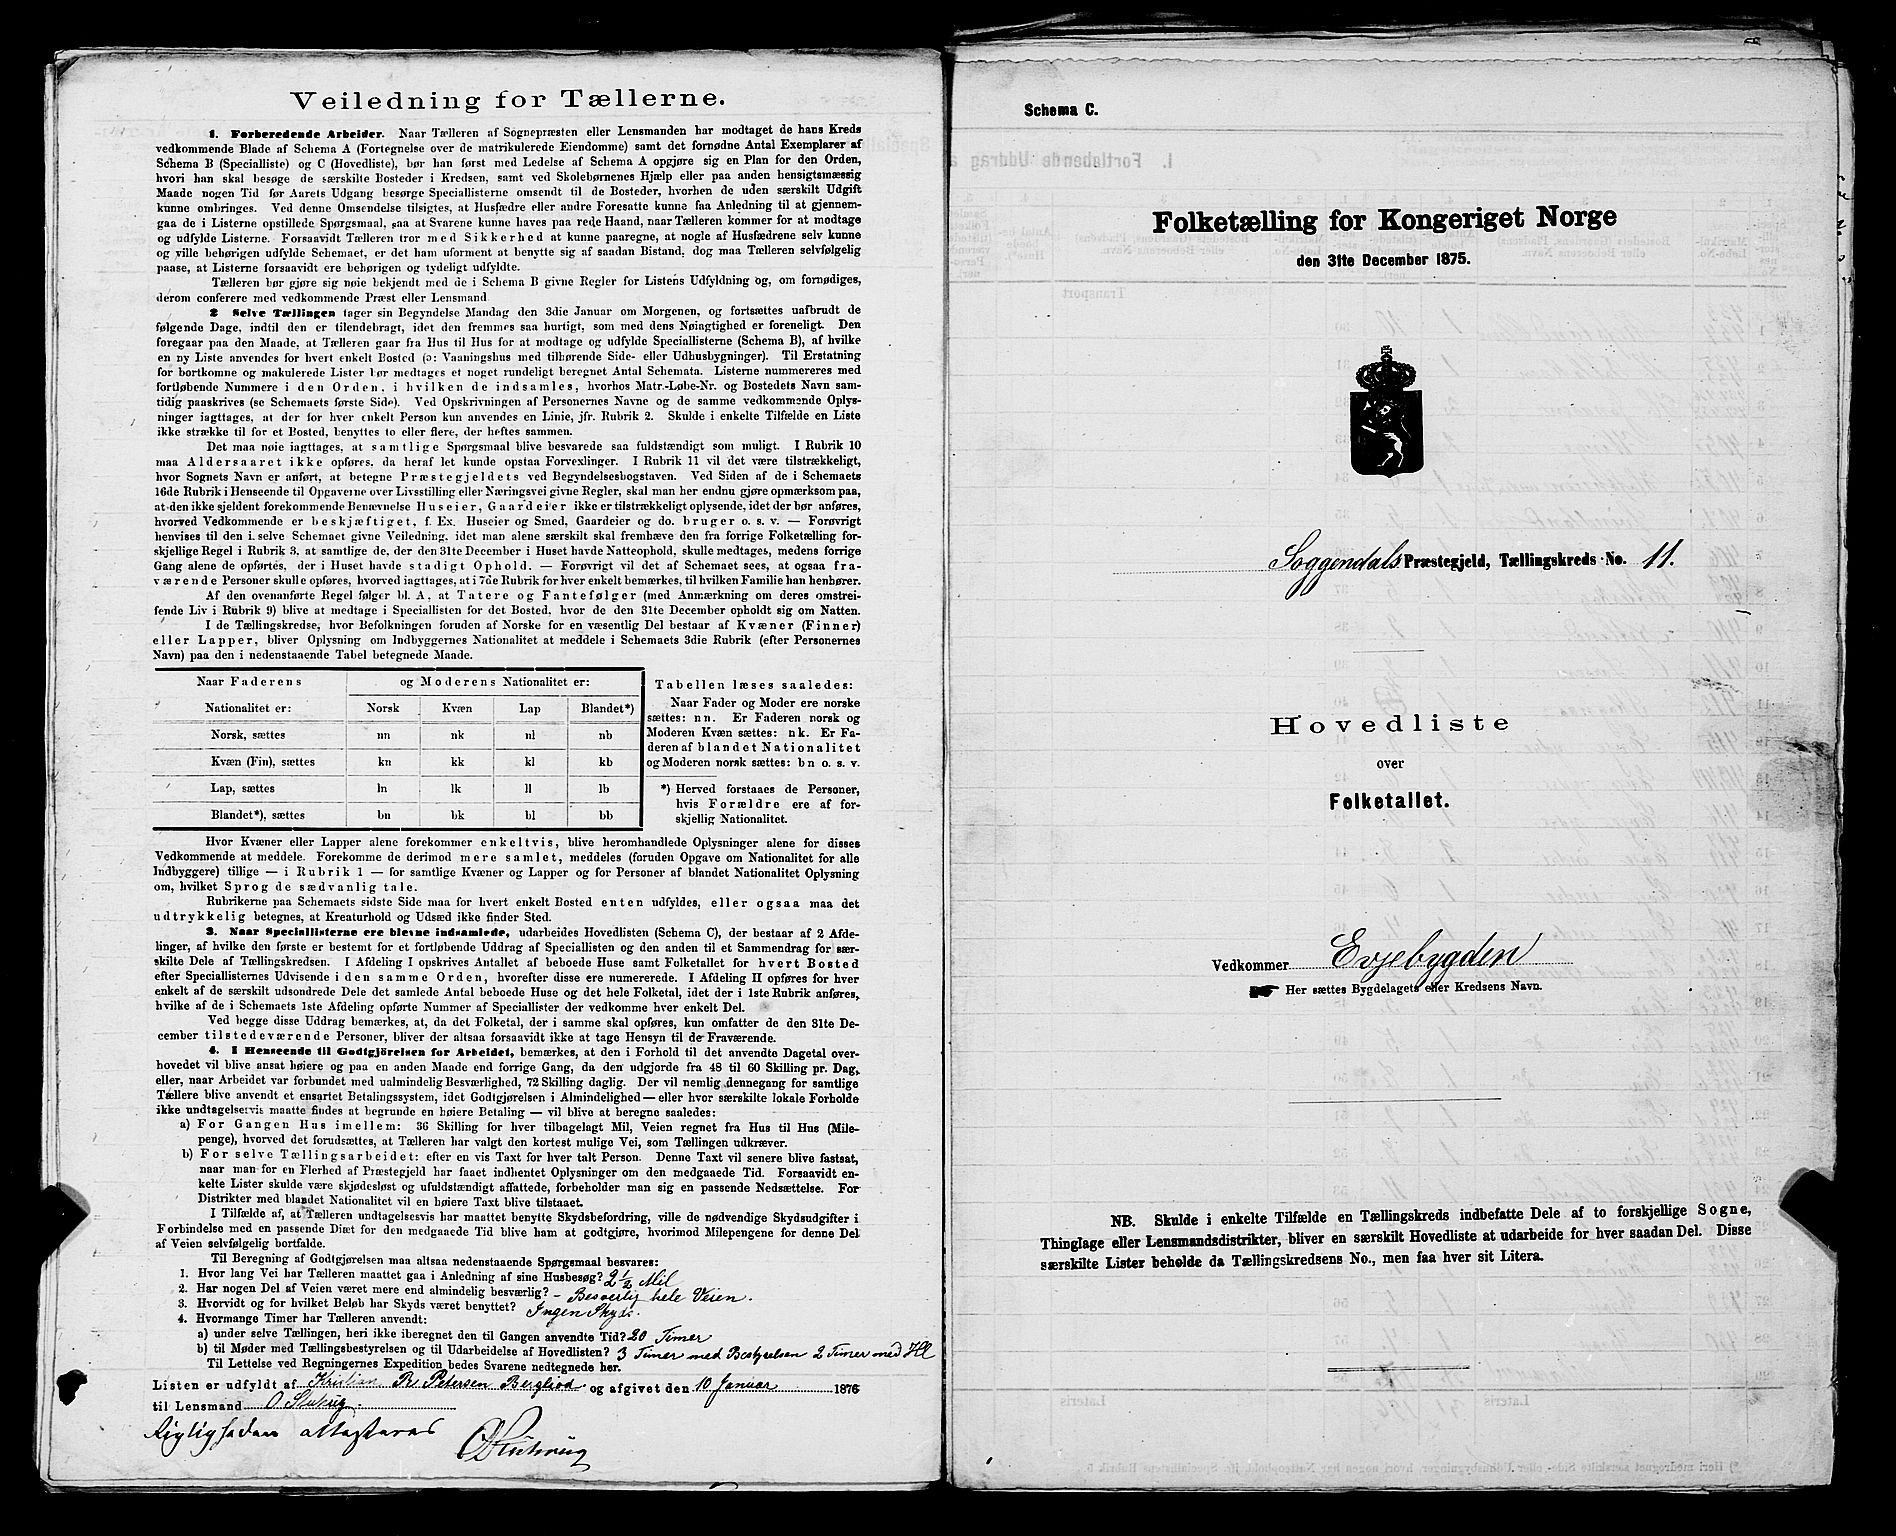 Veiledning for Tællerne.
1. Forberedende Arbeider. Naar Tælleren af Sognepræsten eller Lensmanden har modtaget de hans Kreds
vedkommende Blade af Schema A (Fortegnelse over de matrikulerede Eiendomme) samt det fornødne Antal Exemplarer af
Schema B (Specialliste) og C (Hovedliste), bør han først med Ledelse af Schema A opgjøre sig en Plan for den Orden,
hvori han skal besøge de særskilte Bosteder i Kredsen, samt ved Skolebørnenes Hjælp eller paa anden hensigtsmæssig
Maade nogen Tid før Aarets Udgang besørge Speciallisterne omsendt til de Bosteder, hvorhen de uden særskilt Udgift
kunne ombringes. Ved denne Omsendelse tilsigtes, at Husfædre eller andre Foresatte kunne faa Anledning til at gjennem-
gaa de i Listerne opstillede Spørgsmaal, saa at Svarene kunne haves paa rede Haand, naar Tælleren kommer for at modtage
og udfylde Listerne. Forsaavidt Tælleren tror med Sikkerhed at kunne paaregne, at nogle af Husfædrene selv kunne
og ville behørigen udfylde Schemaet, er det ham uforment at benytte sig af saadan Bistand, dog maa Tælleren selvfølgelig
paase, at Listerne forsaavidt ere behørigen og tydeligt udfyldte.
Tælleren bør gjøre sig nøie bekjendt med de i Schema B givne Regler for Listens Udfyldning og, om fornødiges,
derom conferere med vedkommende Præst eller Lensmand
2 Selve Tællingen tager sin Begyndelse Mandag den 3die Januar om Morgenen, og fortsættes uafbrudt de
følgende Dage, indtil den er tilendebragt, idet den fremmes saa hurtigt, som med dens Nøiagtighed er foreneligt. Den
foregaar paa den Maade, at Tælleren gaar fra Hus til Hus for at modtage og udfylde Speciallisterne (Schema B), af hvilke
en ny Liste anvendes for hvert enkelt Bosted (ɔ: Vaaningshus med tilhørende Side- eller Udhusbygninger). Til Erstatning
for bortkomne og makulerede Lister bør medtages et noget rundeligt beregnet Antal Schemata. Listerne nummereres med
fortløbende Nummere i den Orden, i hvilken de indsamles, hvorhos Matr.-Løbe-Nr. og Bostedets Navn sam-
tidig paaskrives (se Schemaets første Side). Ved Opskrivningen af Personernes Navne og de samme vedkommende Oplys-
ninger iagttages, at der for hver enkelt Person kun anvendes en Linie, jfr. Rubrik 2. Skulde i enkelte Tilfælde en Liste
ikke strække til for et Bosted, benyttes to eller flere, der heftes sammen.
Det maa nøie iagttages, at samtlige Spørgsmaal blive besvarede saa fuldstændigt som muligt. I Rubrik 10
maa Aldersaaret ikke opføres, da heraf let kunde opstaa Forvexlinger. I Rubrik 11 vil det være tilstrækkeligt,
hvor Sognets Navn er anført, at betegne Præstegjeldets ved Begyndelsesbogstaven. Ved Siden af de i Schemaets
16de Rubrik i Henseende til Opgaverne over Livsstilling eller Næringsvei givne Regler, skal man her endnu gjøre opmærksom paa,
at den ikke sjeldent forekommende Benævnelse Huseier, Gaardeier ikke er tilstrækkeligt oplysende, idet der bør anføres,
hvorved Vedkommende er beskjæftiget, f. Ex. Huseier og Smed, Gaardeier og do. bruger o. s. v. — Forøvrigt
henvises til den i selve Schemaet givne Veiledning, idet man alene særskilt skal fremhæve den fra forrige Folketælling for-
skjellige Regel i Rubrik 3, at samtlige de, der den 31te December i Huset havde Natteophold, skulle medtages, medens forrige
Gang alene de opførtes, der i Huset havde stadigt Ophold. — Forøvrigt vil det af Schemaet sees, at ogsaa fra-
værende Personer skulle opføres, hvorved iagttages, at i 7de Rubrik for hver enkelt bemærkes, til hvilken Familie han henhører.
Af den ovenanførte Regel følger bl. A., at Tatere og Fantefølger (med Anmærkning om deres omstrei-
fende Liv i Rubrik 9) blive at medtage i Speciallisten for det Bosted, hvor de den 31te December opholdt sig om Natten.
I de Tællingskredse, hvor Befolkningen foruden af Norske for en væsentlig Del bestaar af Kvæner (Finner)
eller Lapper, bliver Oplysning om Indbyggernes Nationalitet at meddele i Schemaets 3die Rubrik (efter Personernes
Navn) paa den i nedenstaaende Tabel betegnede Maade.
Naar Faderens og Moderens Nationalitet er:
Nationalitet er: Norsk Kvæn Lap Blandet*)
Norsk, sættes nn nk nl nb
Kvæn (Fin), sættes kn kk kl kb
Lap, sættes ln lk ll lb
Blandet*), sættes bn bk bl bb
Tabellen læses saaledes:
Naar Fader og Moder ere norske
sættes: nn. Er Faderen norsk og
Moderen Kvæn sættes: nk. Er Fa-
deren af blandet Nationalitet
og Moderen norsk sættes: bn o. s. v.
*) Herved forstaaes de Personer,
hvis Forældre ere af for-
skjellig Nationalitet.
Hvor Kvæner eller Lapper alene forekommer enkeltvis, blive heromhandlede Oplysninger alene for disses
Vedkommende at meddele. Forekomme de derimod mere samlet, meddeles (foruden Opgave om Nationalitet for alle
Indbyggere) tillige — i Rubrik 1 — for samtlige Kvæner og Lapper og for Personer af blandet Nationalitet Oplysning
om, hvilket Sprog de sædvanlig tale.
Rubrikerne paa Schemaets sidste Side maa for hvert enkelt Bosted enten udfyldes, eller ogsaa maa det
udtrykkelig betegnes, at Kreaturhold og Udsæd ikke finder Sted.
3. Naar Speciallisterne ere blevne indsamlede, udarbeides Hovedlisten (Schema C), der bestaar af 2 Afde-
linger, af hvilke den første er bestemt for et fortløbende Uddrag af Speciallisten og den anden til et Sammendrag for sær-
skilte Dele af Tællingskredsen. I Afdeling I opskrives Antallet af beboede Huse samt Folketallet for hvert Bosted
efter Speciallisternes Udvisende i den samme Orden, hvorefter disse ere numererede. I Afdeling II opføres for hver
enkelt af de særskilt udsondrede Dele det samlede Antal beboede Huse og det hele Folketal, idet der i 1ste Rubrik anføres,
hvilke af de i Schemaets 1ste Afdeling opførte Nummer af Speciallister der vedkomme hver enkelt Del.
Ved begge disse Uddrag bemærkes, at, da det Folketal, der i samme skal opføres, kun omfatter de den 31te De-
cember tilstedeværende Personer, bliver der altsaa forsaavidt ikke at tage Hensyn til de Fraværende.
4. I Henseende til Godtgjörelsen for Arbeidet, bemærkes, at den i Forhold til det anvendte Dagetal over-
hovedet vil blive ansat høiere og paa en anden Maade end forrige Gang, da den udgjorde fra 48 til 60 Skilling pr. Dag,
eller, naar Arbeidet var forbundet med ualmindelig Besværlighed, 72 Skilling daglig. Der vil nemlig dennegang for samtlige
Tællere blive anvendt et ensartet Betalingssystem, idet Godtgjörelsen i Almindelighed — eller hvor særskilte lokale Forholde
ikke undtagelsesvis maatte findes at begrunde en høiere Betaling — vil blive at beregne saaledes:
a) For Gangen Hus imellem: 36 Skilling for hver tilbagelagt Mil, Veien regnet fra Hus til Hus (Mile-
penge), hvorved det forudsættes, at Tælleren har valgt den kortest mulige Vei, som Tællingen udkræver.
b) For selve Tællingsarbeidet: efter en vis Taxt for hver talt Person. Denne Taxt vil senere blive fastsat,
naar man for en Flerhed af Præstegjeld har faaet indhentet Oplysninger om den medgaaede Tid. Forsaavidt en-
kelte Lister skulde være skjødesløst og ufuldstændigt affattede, forbeholder man sig en passende Nedsættelse. For
Distrikter med blandet Nationalitet vil en høiere Taxt blive tilstaaet.
I Tilfælde af, at Tælleren undtagelsesvis har maattet benytte Skydsbefordring, ville de nødvendige Skydsudgifter i
Forbindelse med en passende Diæt for den medgaaede Tid blive ham at godtgjøre, hvorimod Milepengene for denne Del
af Veien selvfølgelig bortfalde.
Til Beregning af Godtgjørelsen maa altsaa nedenstaaende Spørgsmaal besvares:
1. Hvor lang Vei har Tælleren maattet gaa i Anledning af sine Husbesøg? 2 1/2 Mil
2. Har nogen Del af Veien været mere end almindelig besværlig? – Besverlig hele Veien.
3. Hvorvidt og for hvilket Beløb har Skyds været benyttet? Ingen Skyds.
4. Hvormange Timer har Tælleren anvendt:
a) under selve Tællingen, heri ikke iberegnet den til Gangen anvendte Tid? 20 Timer
b) til Møder med Tællingsbestyrelsen og til Udarbeidelse af Hovedlisten? 3 Timer med Bestyrelsen 2 Timer med Hl
Til Lettelse ved Regningernes Expedition bedes Svarene nedtegnede her.
Listen er udfyldt af Kristian R Petersen Bergliod og afgivet den 10 Januar 1876
til Lensmand O Stuhrug.
Rigtigheden attesteres
O Stuhrug
Schema C.
Folketælling for Kongeriget Norge
den 31te December 1875.
Soggendals Præstegjeld, Tællingskreds No. 11.
Hovedliste
over
Folketallet.
Vedkommer Evjebygden
Her sættes Bygdelagets eller Kredsens Navn.
NB. Skulde i enkelte Tilfælde en Tællingskreds indbefatte Dele af to forskjellige Sogne,
Thinglage eller Lensmandsdistrikter, bliver en særskilt Hovedliste at udarbeide for hver saadan Del. Disse
særskilte Lister beholde da Tællingskredsens No., men faa hver sit Litera.